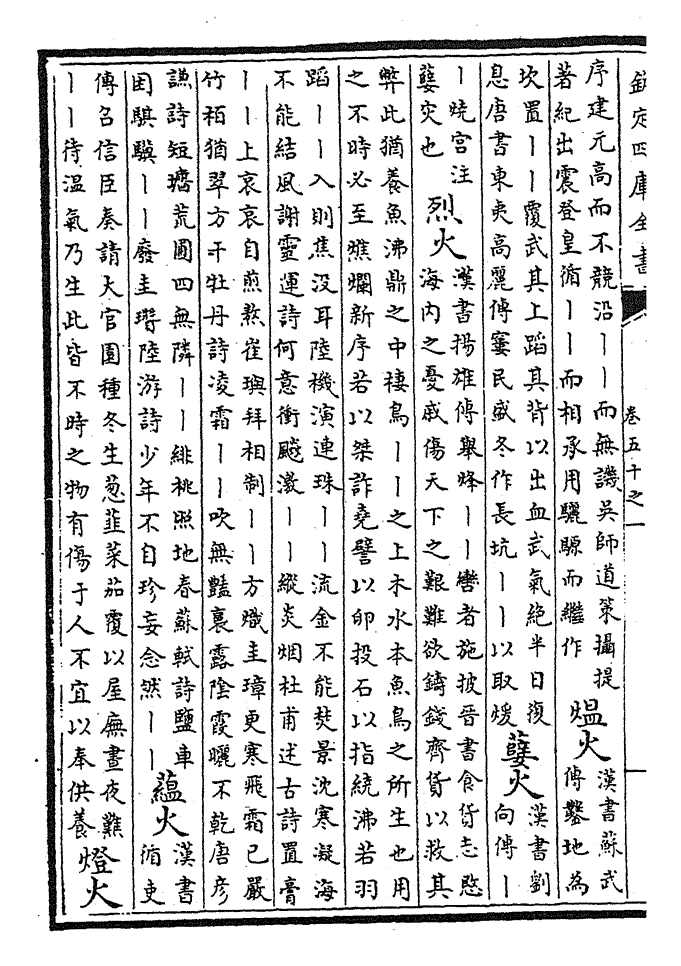 欽定四庫全書
卷五十之一
序建元高而不競沿丨丨而無譏吳師道策攝提
著紀出震登皇循丨丨而相承用驪騵而繼作
煴火
漢書蘇武
傳鑿地為
坎置丨丨覆武其上蹈其背以出血武氣絶半日復
息唐書東夷高麗傳窶民盛冬作長坑丨丨以取煖
孽火
漢書劉
向傳丨
丨燒宫注
孽灾也
烈火
漢書揚雄傳舉烽丨丨轡者施披晉書食貨志愍
海内之憂戚傷天下之艱難欲鑄錢齊貨以救其
弊此猶養魚沸鼎之中棲鳥丨丨之上木水本魚鳥之所生也用
之不時必至燋爛新序若以桀詐堯譬以卵投石以指繞沸若羽
蹈丨丨入則焦没耳陸機演連珠丨丨流金不能焚景沈寒凝海
不能結風謝靈運詩何意衝飈激丨丨縱炎烟杜甫述古詩置膏
丨丨上哀哀自煎熬崔璵拜相制丨丨方熾圭璋更寒飛霜已嚴
竹栢猶翠方干牡丹詩凌霜丨丨吹無豔裛露陰霞曬不乾唐彦
謙詩短牆荒圃四無隣丨丨緋桃照地春蘇軾詩鹽車
困騏驥丨丨廢圭瓚陸游詩少年不自珍妄念然丨丨
蘊火
漢書
循吏
傳召信臣奏請大官園種冬生葱韮菜茹覆以屋廡晝夜難
丨丨待溫氣乃生此皆不時之物有傷于人不宜以奉供養
燈火